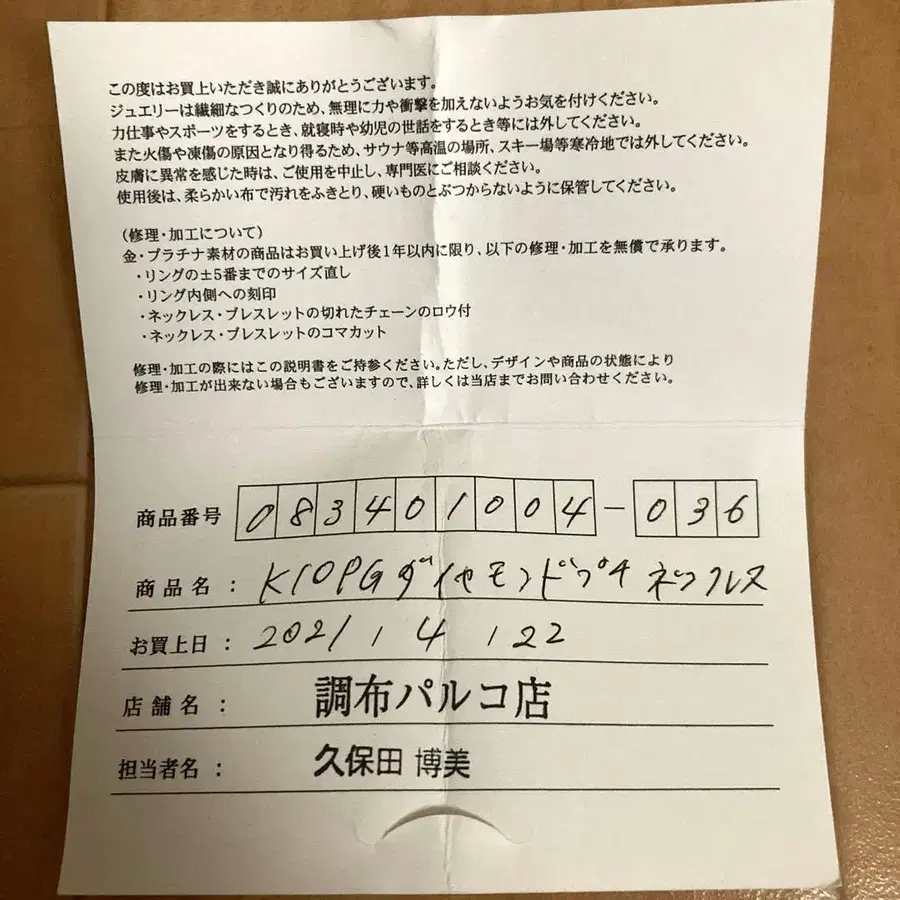 この度はお買上いただき誠にありがとうございます。
ジュエリーは繊細なつくりのため、無理に力や衝撃を加えないようお気を付けください。
力仕事やスポーツをするとき、就寝時や幼児の世話をするとき等には外してください。
また火傷や凍傷の原因となり得るため、サウナ等高温の場所、スキー場等寒冷地では外してください。
皮膚に異常を感じた時は、ご使用を中止し、専門医にご相談ください。
使用後は、柔らかい布で汚れをふきとり、硬いものとぶつからないように保管してください。
(修理・加工について)
金・プラチナ素材の商品はお買い上げ後1年以内に限り、以下の修理・加工を無償で承ります。
・リングの±5番までのサイズ直し
・リング内側への刻印
・ネックレス・ブレスレットの切れたチェーンのロウ付
・ネックレス・ブレスレットのコマカット
修理・加工の際にはこの説明書をご持参ください。ただし、デザインや商品の状態により
修理・加工が出来ない場合もございますので、詳しくは当店までお問い合わせください。
商品番号 083401004-036
商品名: K10PGダイヤモンドプチネックレス
お買上日: 2021/4/22
店舗名: 調布パルコ店
担当者名: 久保田 博美